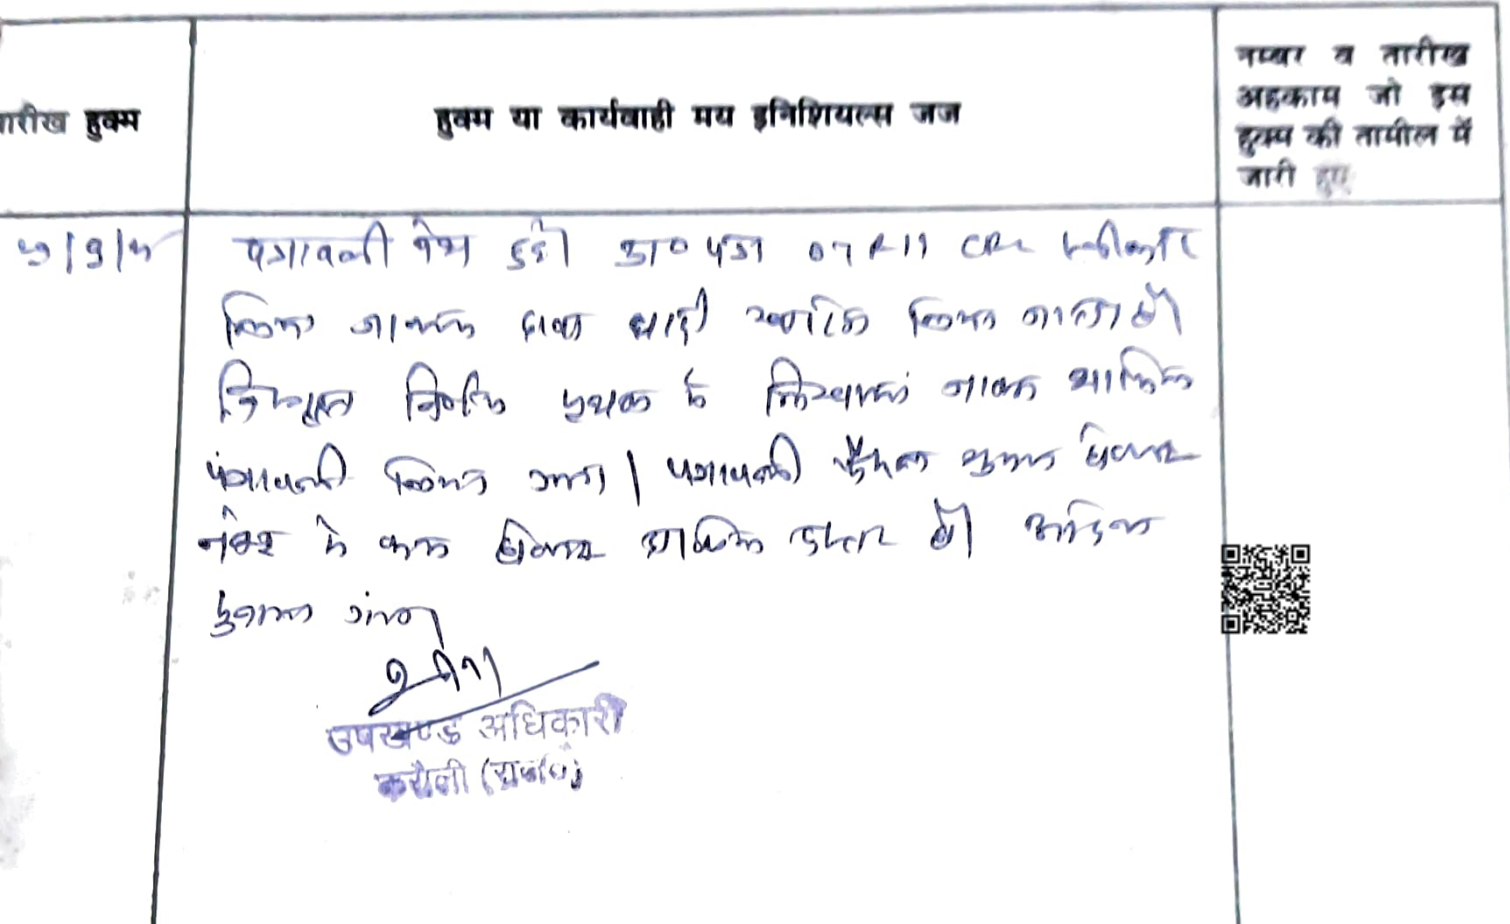 तारीख हुक्म
हुक्म या कार्यवाही मय इनिशियल्स जज
नम्बर व तारीख
अहकाम जो इस
हुक्म की तामील में
जारी हुए
पत्रावली पेश हुई। प्रा० पत्र 07 R 11 CPC स्वीकार
किया जाकर दावा वादी खारिज किया जाता है।
विस्तृत निर्णय पृथक से लिखाया जाकर शामिल
पत्रावली किया गया। पत्रावली फैसल शुमार होकर
नम्बर से कम होकर दाखिल दफ्तर हो। आदेश
सुनाया गया।
उपखण्ड अधिकारी
करौली (राज०)